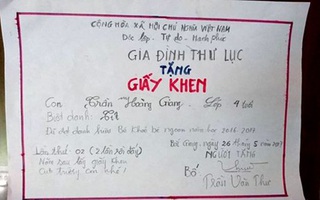 CỘNG HÒA XÃ HỘI CHỦ NGHĨA VIỆT NAM
Độc lập - Tự do - Hạnh phúc
GIA ĐÌNH THƯ LỤC
TẶNG
GIẤY KHEN
Con Trần Hoàng Giang - Lớp 4 tuổi
Biệt danh: Tít
Đã đạt danh hiệu Bé Khỏe bé ngoan năm học 2016 2017
Bắc Giang, ngày 26 tháng 5 năm 2017
Lần thứ: 02 (2 lần rồi đấy)
NGƯỜI TẶNG
Năm sau lấy giấy khen
Bố
Cứ trường em nhé!
Trần Văn Thư